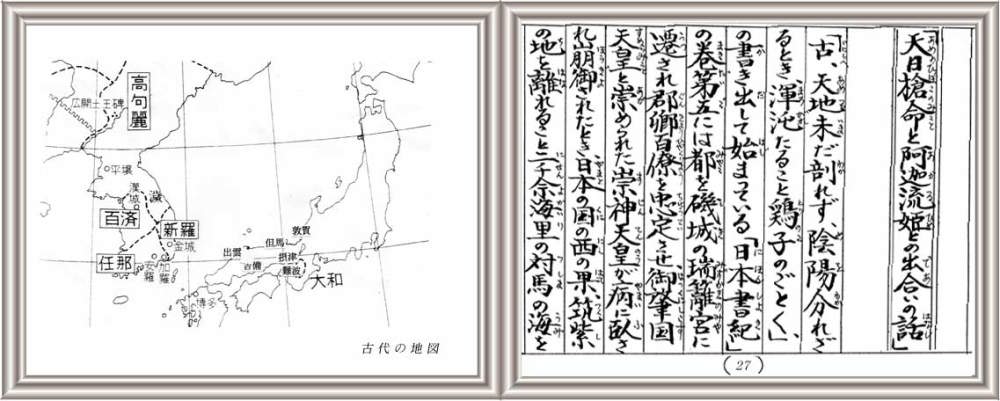 高句麗
広開土王碑
平壌
漢城
濊
百済
新羅
金城
任那
安羅
加羅
敦賀
但馬
出雲
摂津
吉備
難波
大和
博多
古代の地図
「天日槍命と阿迦流姫との出合いの話」
「古、天地未だ剖れず、陰陽分れざ
るとき、渾沌たること鶏子のごとく、」
の書き出しで始まっている「日本書紀」
の巻第五には都を磯城の瑞籬宮に
遷され郡卿百僚を忠定させ御肇国
天皇と崇められた崇神天皇が病に臥さ
れ崩御されたとき日本の国の西の果、筑紫
の地を離れること二千余海里の対馬の海を
(27)